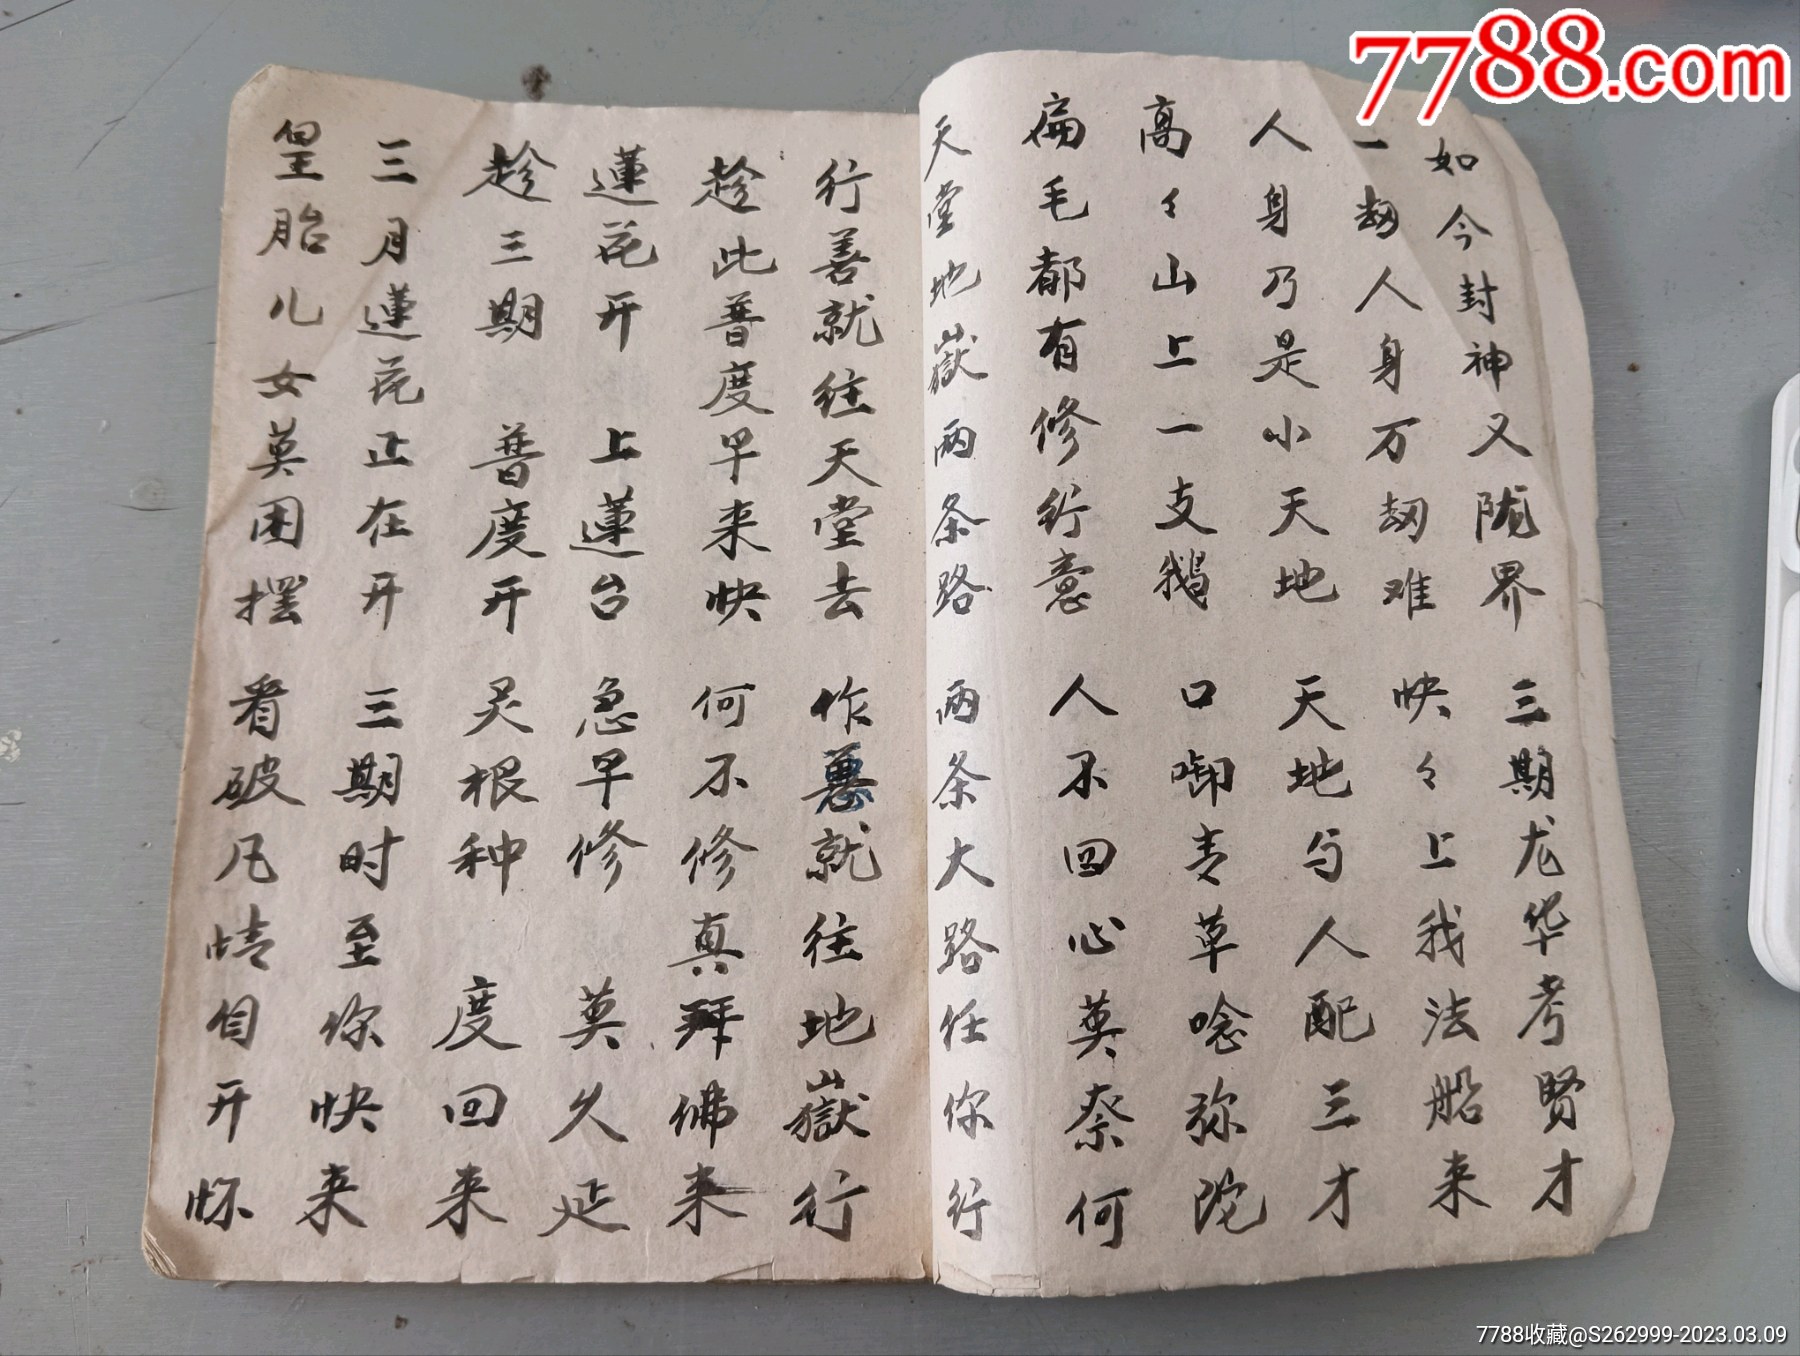 如今封神又陇界 三期龙华考賢才
一劫人身万劫难 快々上我法船来
人身乃是小天地 天地与人配三才
高々山上一支鵝 口啣青草唸弥陀
扁毛都有修行意 人不回心莫奈何
天堂地嶽两条路 两条大路任你行
行善就往天堂去 作惡就往地嶽行
趁此普度早来快 何不修真拜佛来
蓮花开 上蓮台 急早修 莫久延
趁三期 普度开 灵根种 度回来
三月蓮花正在开 三期时至你快来
皇胎儿女莫困摆 看破凡情自开怀
7788.com
7788收藏@S262999-2023.03.09